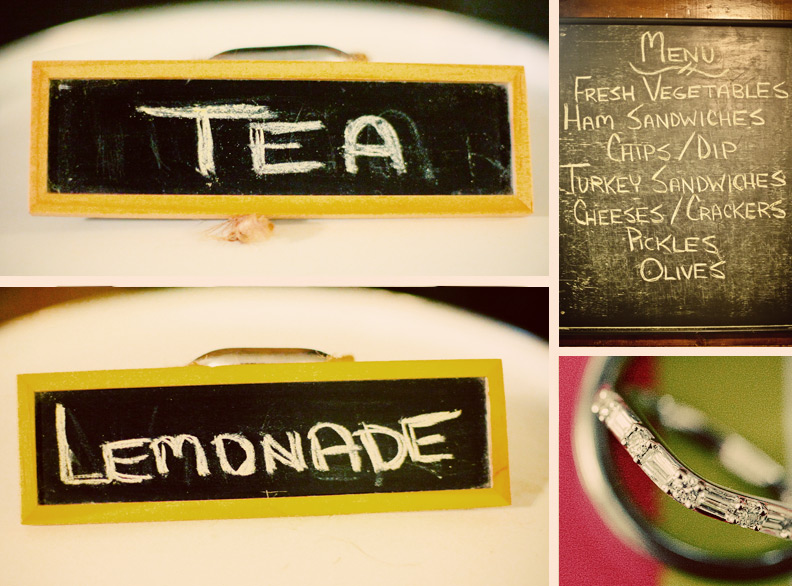 TEA
MENU
FRESH VEGETABLES
HAM SANDWICHES
CHIPS/DIP
TURKEY SANDWICHES
CHEESES/CRACKERS
PICKLES
OLIVES
LEMONADE